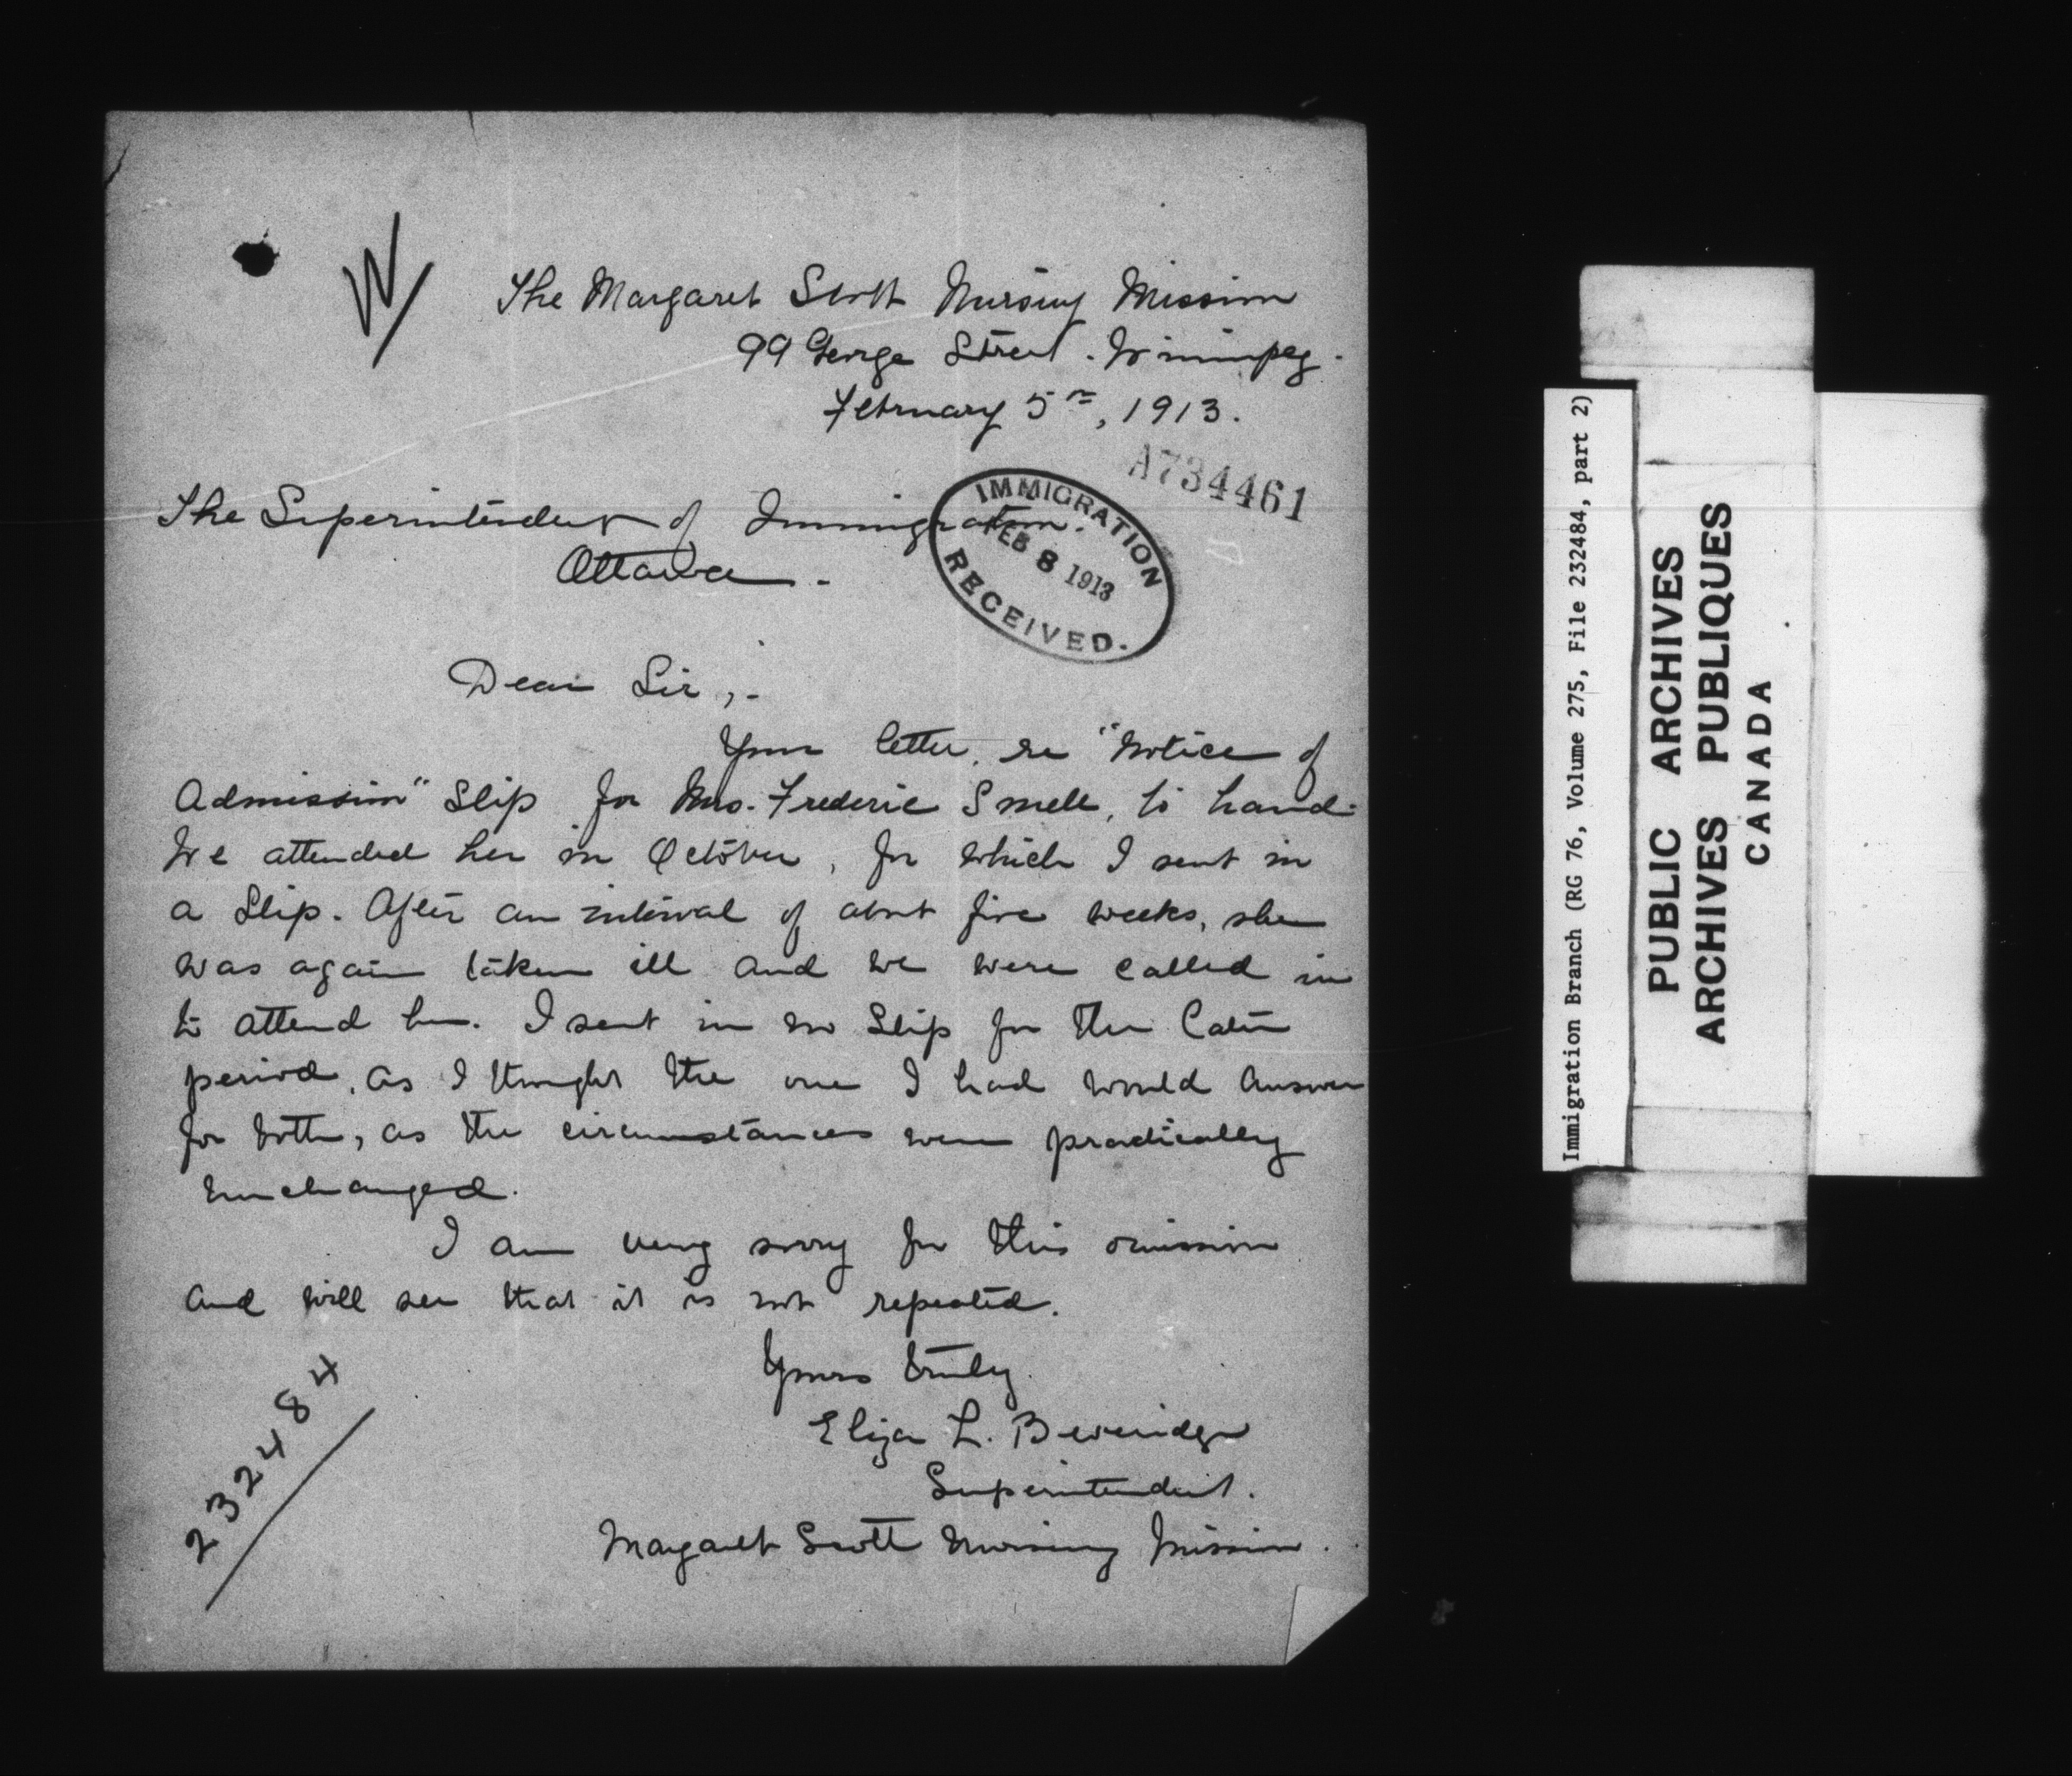 The Margaret Scott Nursing Mission
99 George Street. Winnipeg.
February 5th, 1913.
A734461
The Superintendent of Immigration.
Ottawa.
IMMIGRATION
FEB 8 1913
RECEIVED.
Dear Sir,-
Your letter, re "Notice of
Admission" Slip for Mrs. Frederic Smell, to hand.
We attended her in October, for which I sent in
a Slip. After an interval of about five weeks, she
was again taken ill and we were called in
to attend her. I sent in no Slip for the later
period, as I thought the one I had would answer
for both, as the circumstances were practically
unchanged.
I am very sorry for this omission
and will see that it is not repeated.
Yours truly.
Eliza L. Beveridge
Superintendent.
Margaret Scott Nursing Mission.
232484
Immigration Branch (RG 76, Volume 275, File 232484, part 2)
PUBLIC ARCHIVES
ARCHIVES PUBLIQUES
CANADA